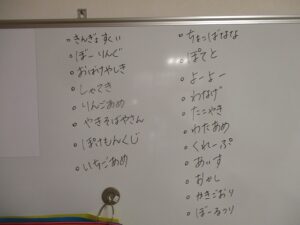 きんぎょすくい
ぼーりんぐ
おばけやしき
しゃてき
りんごあめ
やきそばやさん
ぽけもんくじ
いちごあめ
ちょこばなな
ぽてと
よーよー
わなげ
たこやき
わたあめ
くれーぷ
あいす
おかし
かきごおり
ぼーるつり